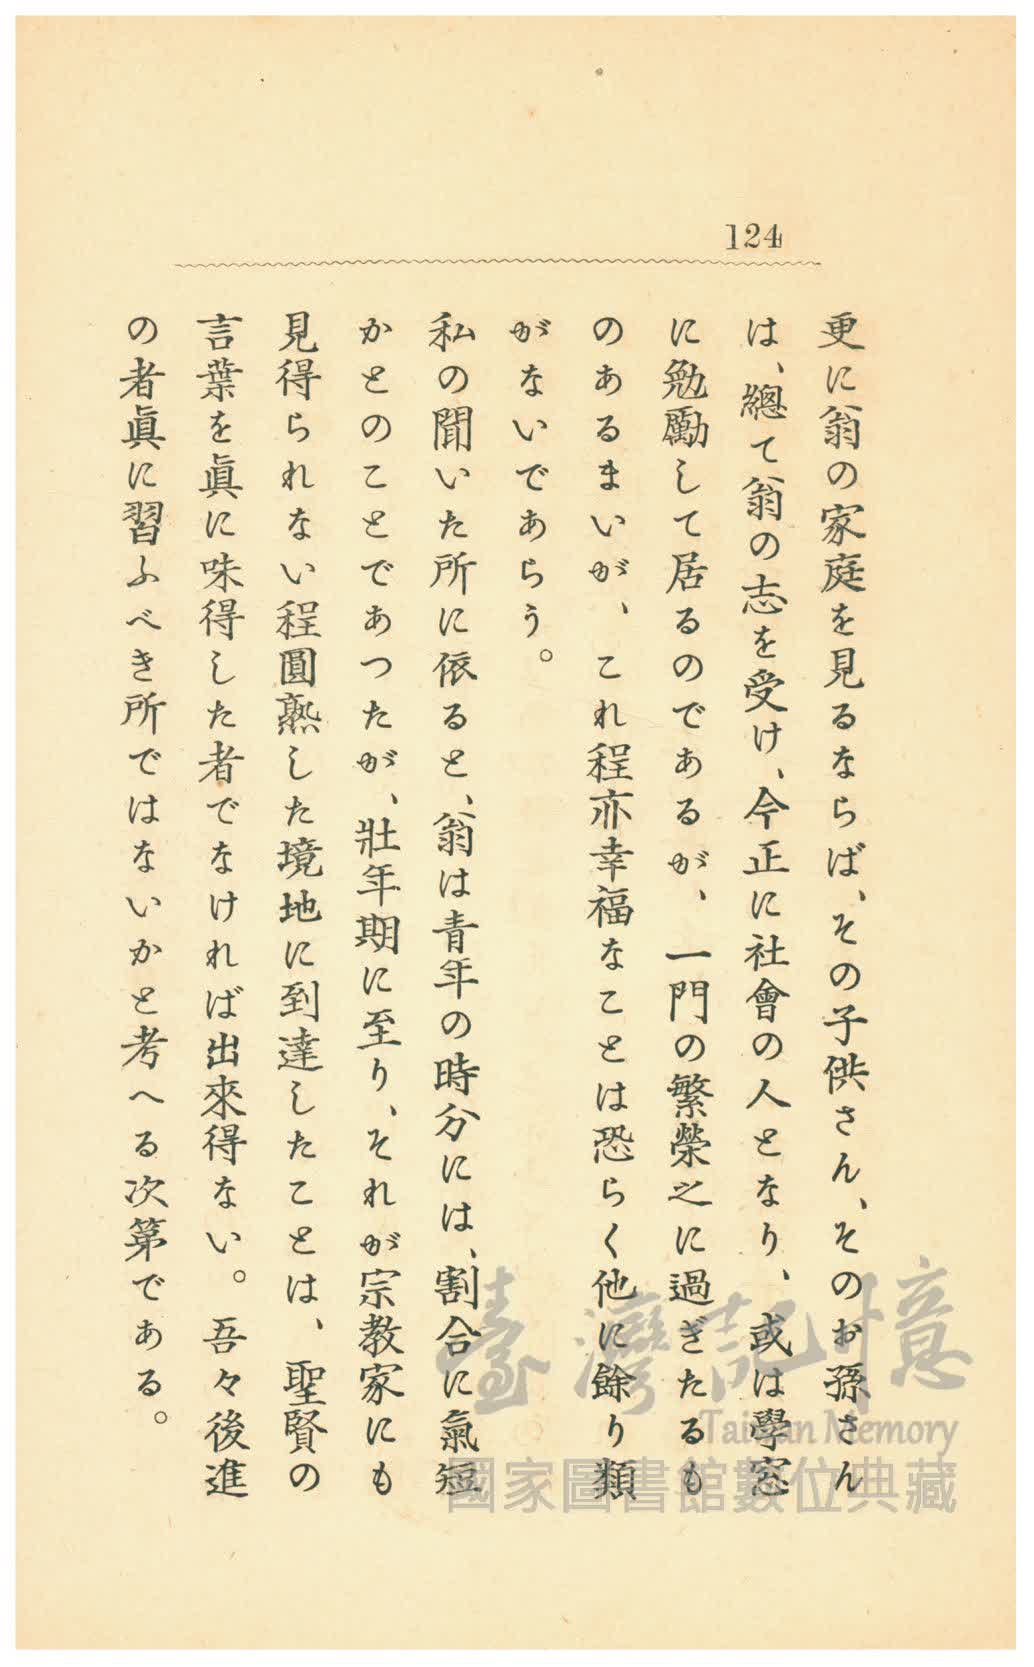 124
更に翁の家庭を見るならば、その子供さん、そのお孫さん
は、總て翁の志を受け、今正に社會の人となり、或は學窓
に勉勵して居るのであるが、一門の繁榮之に過ぎたるも
のあるまいが、これ程亦幸福なことは恐らく他に餘り類
がないであらう。
私の聞いた所に依ると、翁は青年の時分には、割合に氣短
かとのことであつたが、壯年期に至り、それが宗教家にも
見得られない程圓熟した境地に到達したことは、聖賢の
言葉を眞に味得した者でなければ出來得ない。吾々後進
の者眞に習ふべき所ではないかと考へる次第である。
臺灣記憶
Taiwan Memory
國家圖書館數位典藏